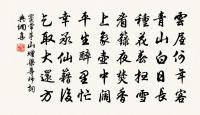 雲屋何年客
青山白日長
種花春掃雪
看籙夜焚香
上象壺中闊
平生醉裏忙
幸承仙籍後
乞取大還方
竇常茅山贈梁尊師詞
典網集